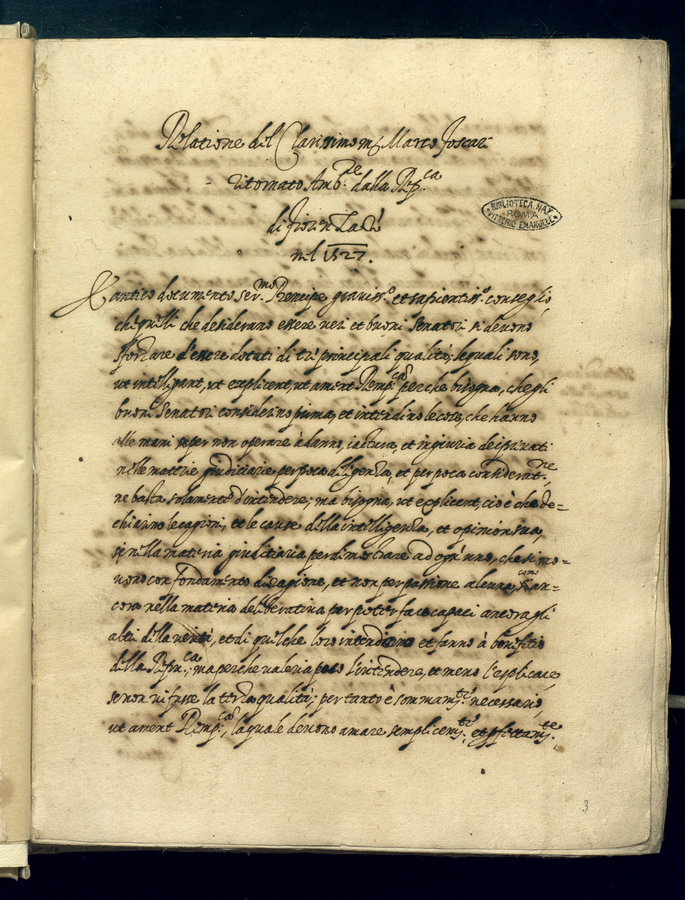 Relatione del Clarissimo m. Marco Foscari
ritornato Amb.re dalla Rep.ca
di Fiorenza
nel 1527.
BIBLIOTECA NAZ
ROMA
VITTORIO EMANUELE
antico documento Ser.mo Prencipe graviss.o et sapientiss.o conseglio
che quelli che desiderano essere veri et buoni Senatori si devono
sforzare d'essere dotati di tre principali qualità, le quali sono,
ut intelligant, ut explicent, ut ament Remp.cam perche bisogna, che gli
buoni Senatori considerino prima, et intendino le cose, che hanno
alle mani per non operare à danno, iactura, et ingiuria de i privati
nelle materie giudiciarie per poca diligenza, et per poca consideratne
ne basta solamente d'intendere; ma bisogna, ut explicent, cio è che de-
chiarino le cagioni, et le cause della intelligenza, et opinion sua,
si nella materia giuditiaria per dimostrare ad ogn'uno, che si mo-
vono con fondamento di ragione, et non per passione alcuna, come an-
cora nella materia deliberativa per poter far capaci ancora gli
altri della verità, et di quel che loro intendono et fanno à benefitio
della Repu.ca; ma perche valeria poco l'intendere, et meno l'esplicare,
se non vi fusse la terza qualità; per tanto è sommam.te necessario,
ut ament Remp.cam, la quale devono amare semplicem.te, et perfettam.te
3